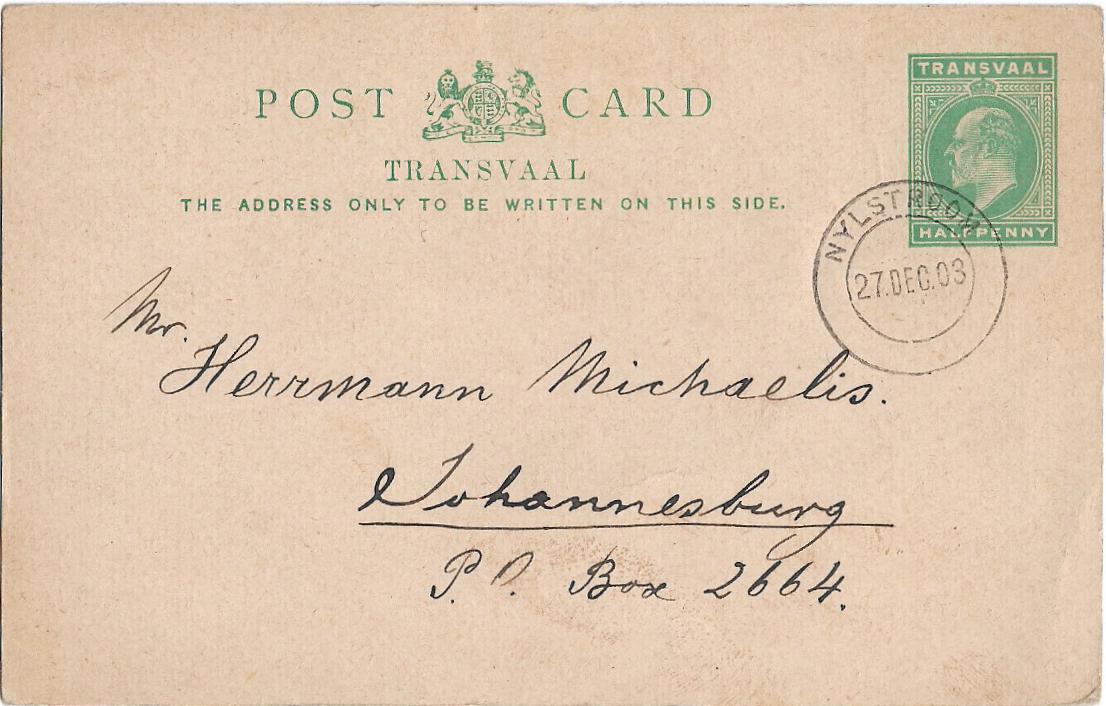 TRANSVAAL
POST CARD
TRANSVAAL
THE ADDRESS ONLY TO BE WRITTEN ON THIS SIDE.
HALFPENNY
NYLSTROOM
27.DEC.03
Mr.
Herrmann Michaelis.
Johannesburg
P.O. Box 2664.